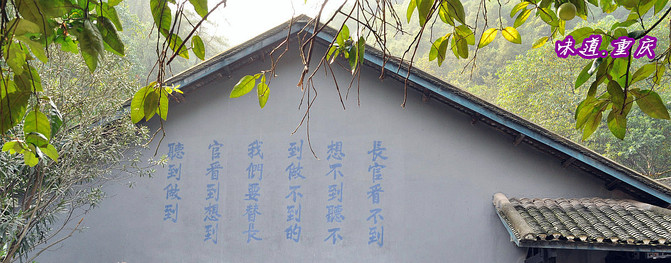 味道.重庆
長官看不到
想不到聽不
到做不到的
我們要替長
官看到想到
聽到做到